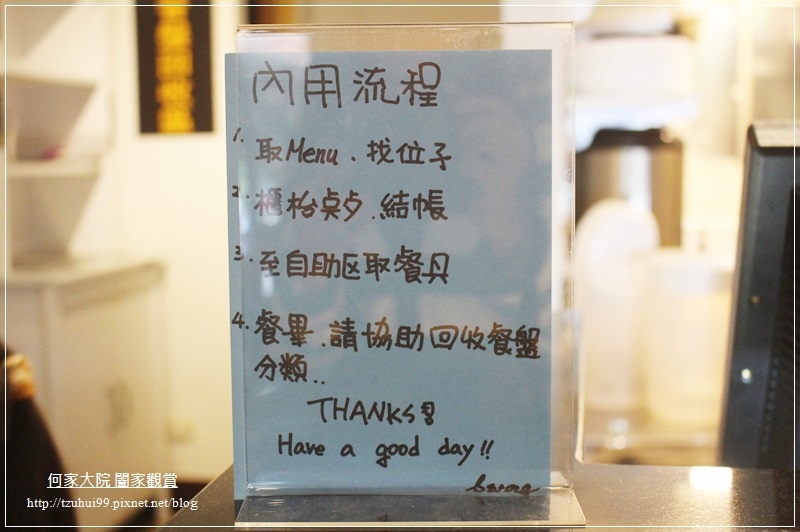 內用流程
1. 取Menu、找位子
2. 櫃枱桌夕、結帳
3. 至自助区取餐具
4. 餐畢、請協助回收餐盤
分類..
THANKS!
Have a good day!!
何家大院 闔家觀賞
http://tzuhui99.pixnet.net/blog